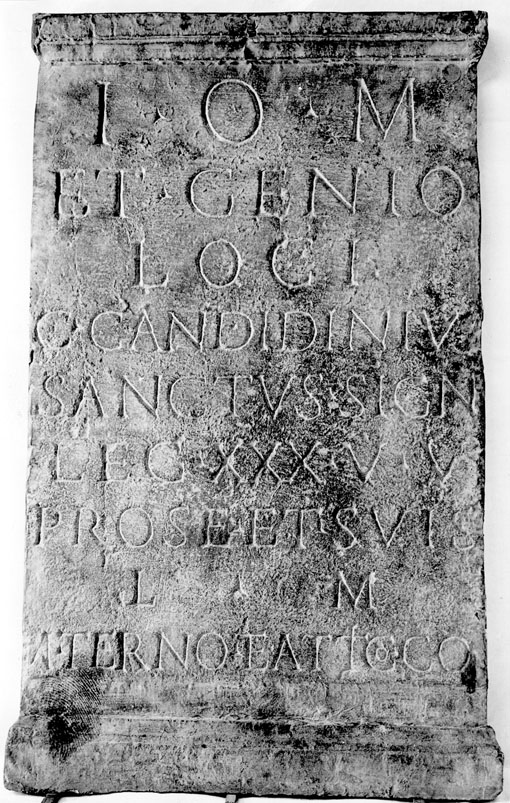 I · O · M
ET · GENIO
LOCI
C · CANDIDINIV
SANCTVS · SIGN
LEG · XXX · V · V
PRO SE ET SVIS
L · M
MATERNO ET ATTICO CO